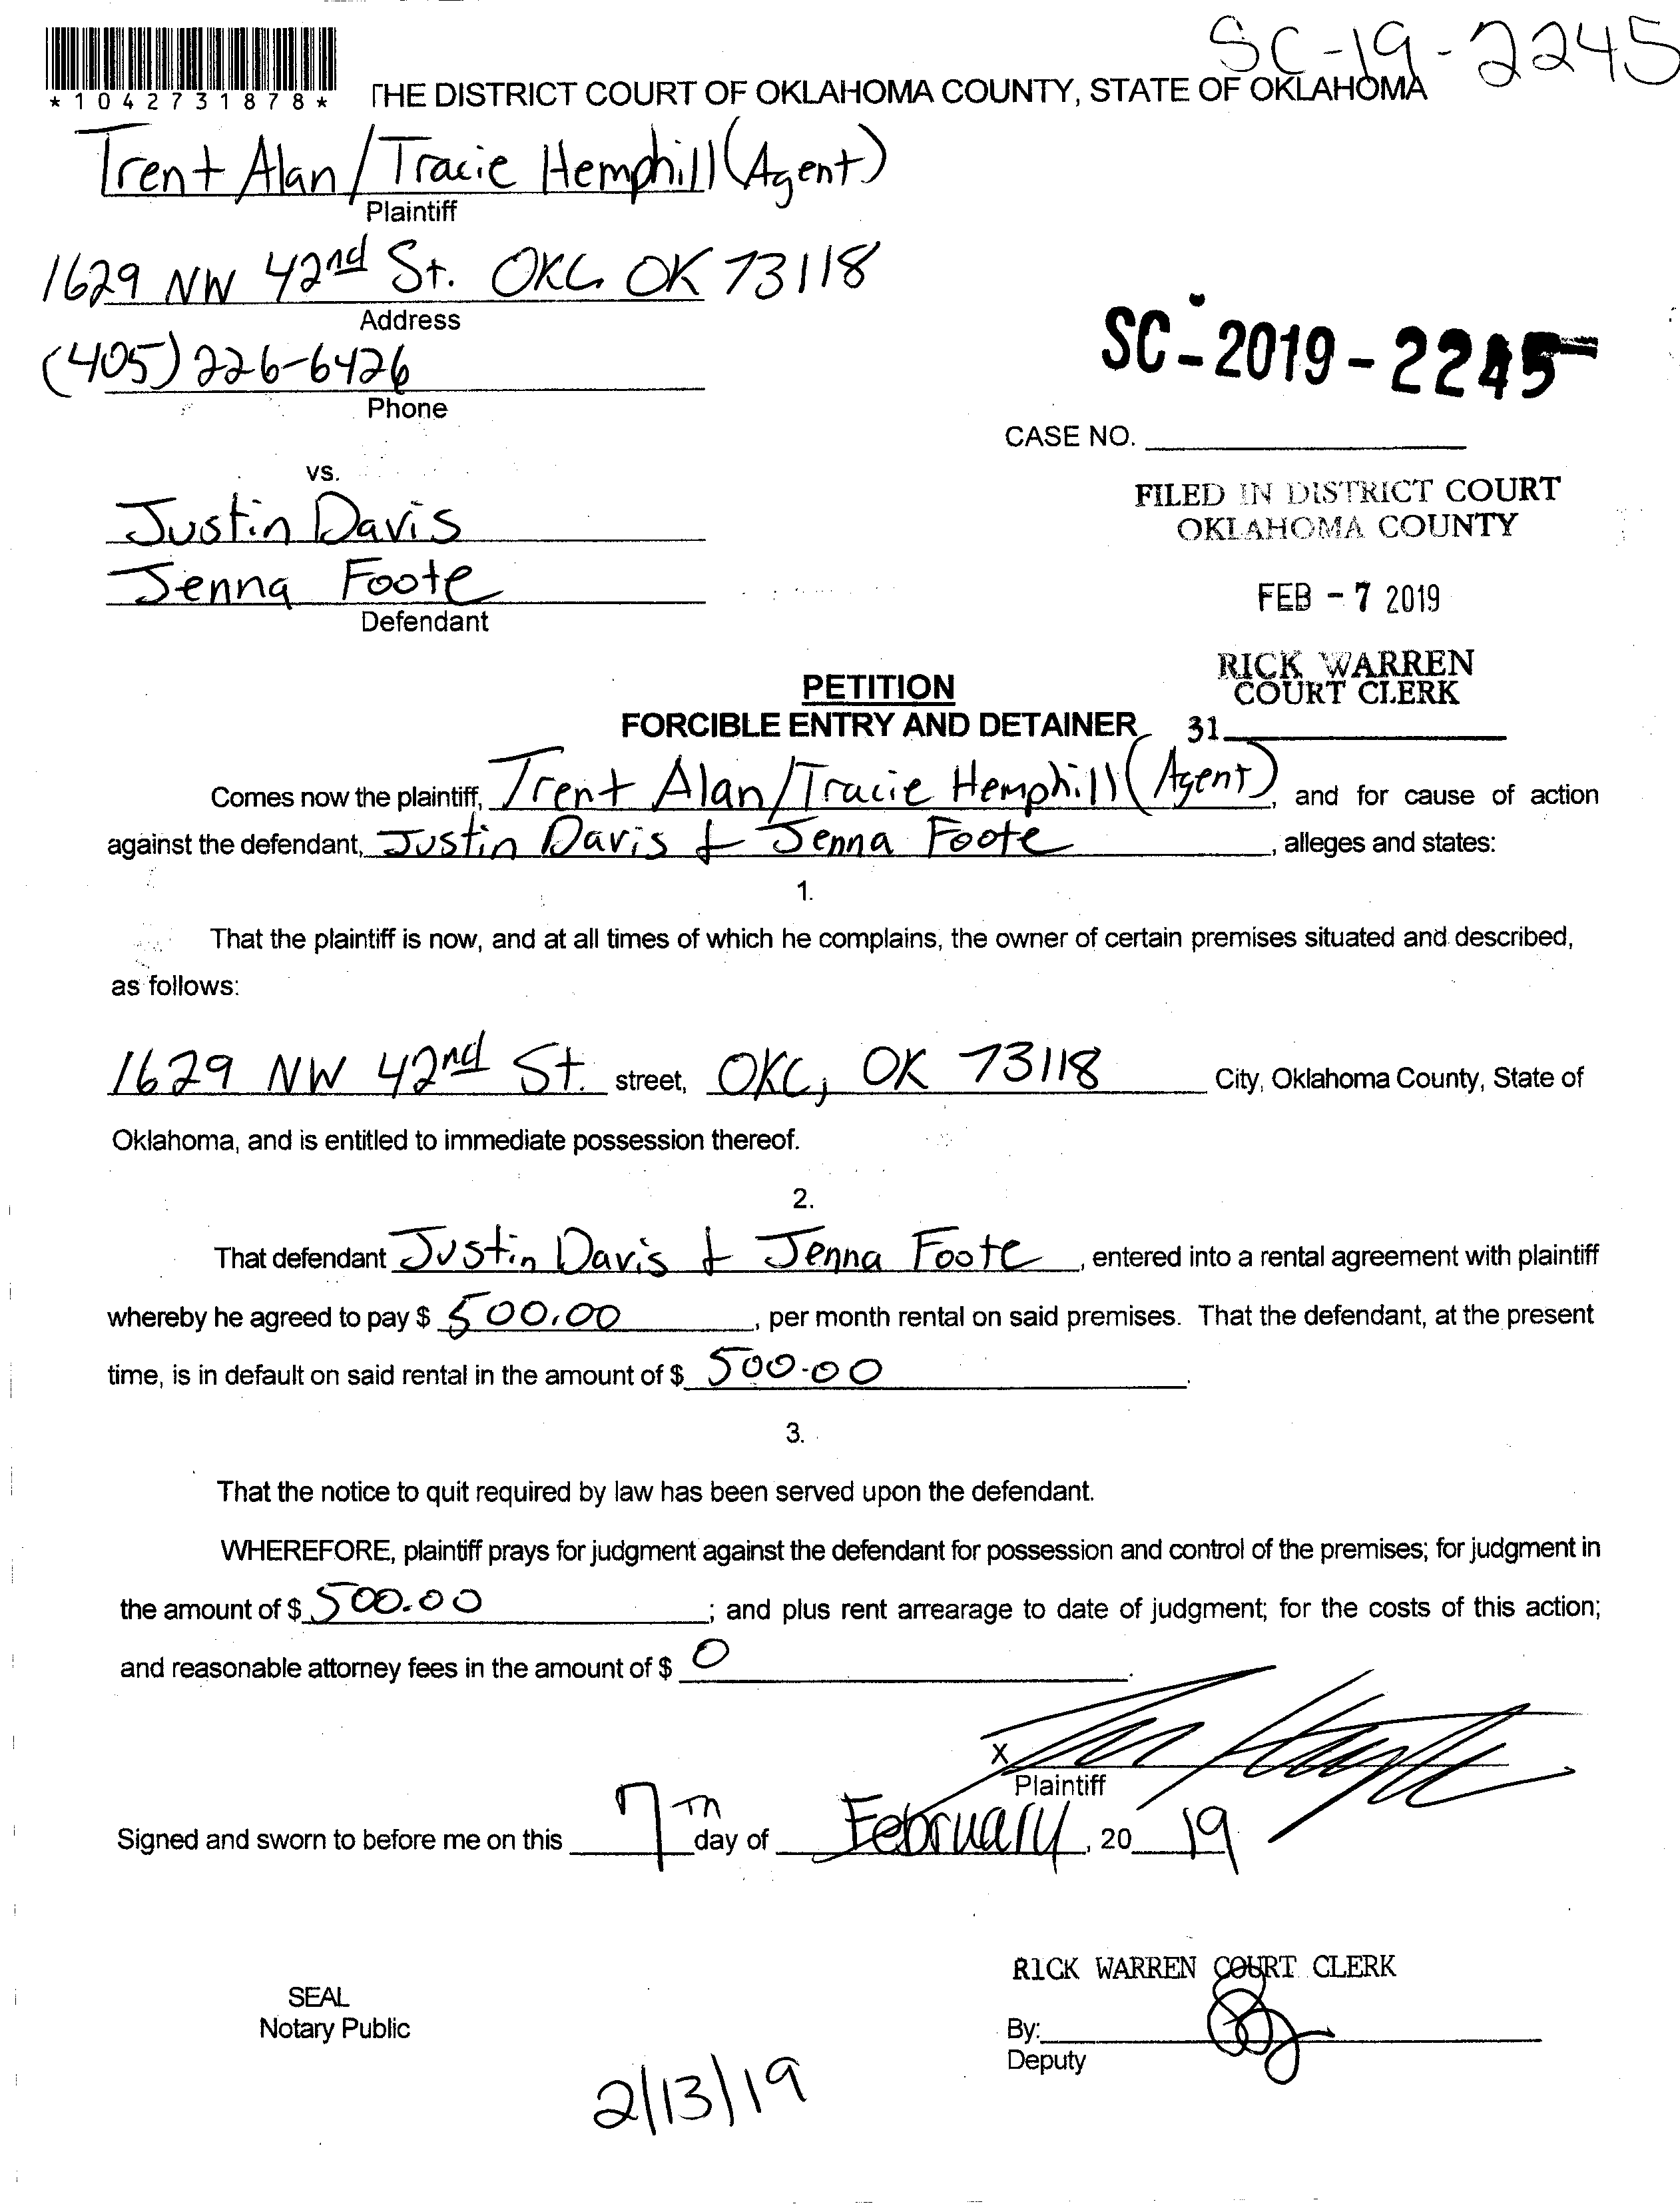 SC-19-2245
*1042731878*
THE DISTRICT COURT OF OKLAHOMA COUNTY, STATE OF OKLAHOMA
Trent Alan/Tracie Hemphill (Agent)
Plaintiff
1629 NW 42nd St. OKC OK 73118
Address
(405) 226-6426
Phone
SC-2019-2245
CASE NO.
vs.
Justin Davis
Jenna Foote
Defendant
FILED IN DISTRICT COURT
OKLAHOMA COUNTY
FEB - 7 2019
RICK WARREN
COURT CLERK
31
PETITION
FORCIBLE ENTRY AND DETAINER
Comes now the plaintiff, Trent Alan/Tracie Hemphill (Agent), and for cause of action
against the defendant, Justin Davis & Jenna Foote, alleges and states:
1.
That the plaintiff is now, and at all times of which he complains, the owner of certain premises situated and described,
as follows:
1629 NW 42nd St. street, OKC, OK 73118 City, Oklahoma County, State of
Oklahoma, and is entitled to immediate possession thereof.
2.
That defendant Justin Davis & Jenna Foote, entered into a rental agreement with plaintiff
whereby he agreed to pay $ 500.00, per month rental on said premises. That the defendant, at the present
time, is in default on said rental in the amount of $ 500.00.
3.
That the notice to quit required by law has been served upon the defendant.
WHEREFORE, plaintiff prays for judgment against the defendant for possession and control of the premises; for judgment in
the amount of $ 500.00; and plus rent arrearage to date of judgment; for the costs of this action;
and reasonable attorney fees in the amount of $ 0.
X
Plaintiff
Signed and sworn to before me on this 7th day of February, 2019
RICK WARREN COURT CLERK
SEAL
Notary Public
By:
Deputy
2/13/19